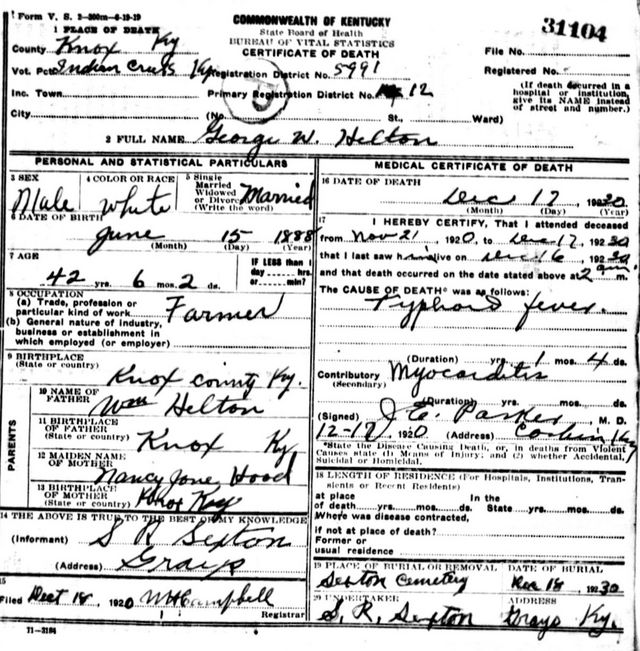 Form V. S. 2-300m-6-19-19
1 PLACE OF DEATH
COMMONWEALTH OF KENTUCKY
State Board of Health
BUREAU OF VITAL STATISTICS
CERTIFICATE OF DEATH
31104
County Knox Ky
File No.
Vot. Pct. Indian Creek Ky Registration District No. 5991
Registered No.
Inc. Town Primary Registration District No. 12
(If death occurred in a hospital or institution, give its NAME instead of street and number.)
City (No. St., Ward)
2 FULL NAME George W. Helton
PERSONAL AND STATISTICAL PARTICULARS
3 SEX Male
4 COLOR OR RACE White
5 Single Married Widowed or Divorced (Write the word) Married
6 DATE OF BIRTH
June 15 1888
(Month) (Day) (Year)
7 AGE
42 yrs. 6 mos. 2 ds.
IF LESS than 1 day ---- hrs. or ---- min.?
8 OCCUPATION
(a) Trade, profession or particular kind of work Farmer
(b) General nature of industry, business or establishment in which employed (or employer)
9 BIRTHPLACE
(State or country) Knox county Ky.
PARENTS
10 NAME OF FATHER Wm Helton
11 BIRTHPLACE OF FATHER
(State or country) Knox Ky
12 MAIDEN NAME OF MOTHER Nancy Jane Hood
13 BIRTHPLACE OF MOTHER
(State or country) Knox Ky
14 THE ABOVE IS TRUE TO THE BEST OF MY KNOWLEDGE
(Informant) S R Sexton
(Address) Grays
15
Filed Dec 18, 1920 W H Campbell
Registrar
11-3184
MEDICAL CERTIFICATE OF DEATH
16 DATE OF DEATH
Dec 17 1930
(Month) (Day) (Year)
17
I HEREBY CERTIFY, That I attended deceased
from Nov 21 1920, to Dec 17, 1930
that I last saw him alive on Dec 16 1930
and that death occurred on the date stated above at 2 am. m.
The CAUSE OF DEATH* was as follows:
Typhoid fever.
(Duration) yrs. 1 mos. 4 ds.
Contributory Myocarditis
(Secondary)
(Duration) yrs. mos. ds.
(Signed) J. E. Parker M. D.
12-18 1920 (Address) Corbin Ky
*State the Disease Causing Death, or, in deaths from Violent Causes state (1) Means of Injury; and (2) whether Accidental, Suicidal or Homicidal.
18 LENGTH OF RESIDENCE (For Hospitals, Institutions, Transients or Recent Residents)
at place of death yrs. mos. ds. In the State yrs. mos. ds.
Where was disease contracted,
if not at place of death?
Former or usual residence
19 PLACE OF BURIAL OR REMOVAL DATE OF BURIAL
Sexton Cemetery Dec 18, 1930
20 UNDERTAKER ADDRESS
S. R. Sexton Grays Ky.